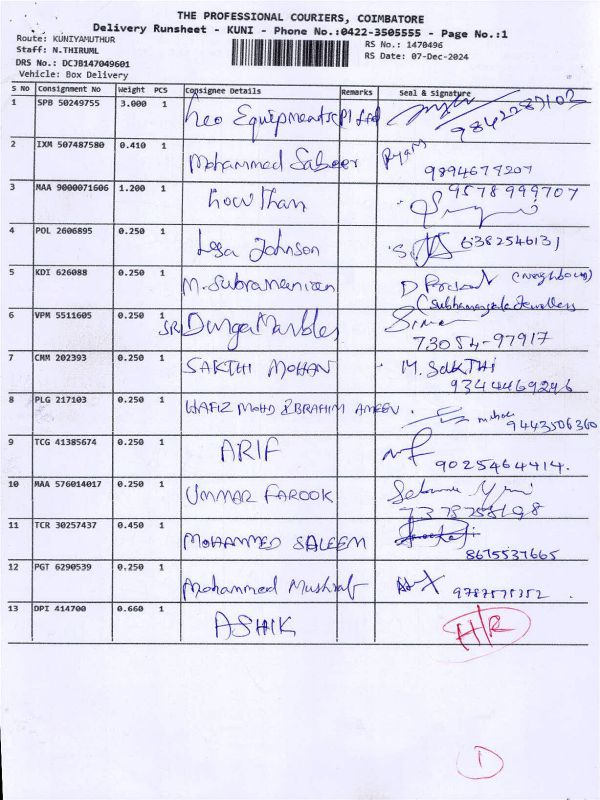 THE PROFESSIONAL COURIERS, COIMBATORE
Delivery Runsheet - KUNI - Phone No.:0422-3505555 - Page No.:1
Route: KUNIYAMUTHUR
Staff: N.THIRUML
DRS No.: DCJB147049601
Vehicle: Box Delivery
RS No.: 1470496
RS Date: 07-Dec-2024
S No Consignment No Weight PCS Consignee Details Remarks Seal & Signature
1 SPB 50249755 3.000 1 Leo Equipments
2 IXM 507487580 0.410 1 Mohammed Sabeer
3 MAA 9000071606 1.200 1 Gowthan
9578999707
4 POL 2606895 0.250 1 Lesa Johnson 6382546131
5 KDI 626088 0.250 1 M. Subramanian (Neighbour)
6 VPM 5511605 0.250 1 SRI Durga Marbles
73054-97917
7 CMM 202393 0.250 1 SAKTHI MOHAN M. SAKTHI
9344469246
8 PLG 217103 0.250 1 HAFIZ MOHD IBRAHIM AMEEN
9443506360
9 TCG 41385674 0.250 1 ARIF
9025464414.
10 MAA 576014017 0.250 1 UMMAR FAROOK
11 TCR 30257437 0.450 1 MOHAMMED SALEEM
8675537665
12 PGT 6290539 0.250 1 Mohammed Mushraf
13 DPI 414700 0.660 1 ASHIK H/R
1